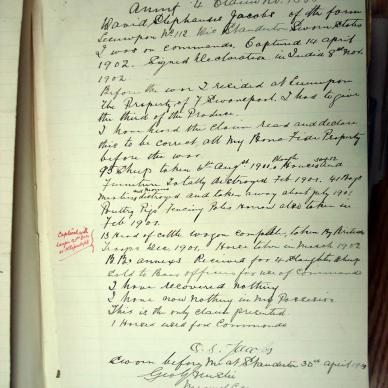 Annx 4 Claim No.
David Stephanus Jacobs of the farm
No 112 Dis Standerton Sworn States
I was on commando. Captured 14 april
1902. Signed Declaration in India 8th Nov.
1902
Before the war I resided at
The Property of I had to give
the third of the Produce.
I have heard the claim read and declare
this to be correct, all My Bona Fide Property
before the war
95 Sheep taken 6th Augst 1901. House and
Furniture Totally destroyed Feb 1901. 41 Bags
Mealies destroyed and taken away about July 1901
Poultry Pigs Fencing Poles Harrow also taken in
Feb 1901.
13 Head of cattle wagon complete, taken By British
Troops Dec 1901. Horse taken in March 1902
B.B. annexes Received for 4 Slaughter Sheep
Sold to Boer officers for use of Commando
I have recovered nothing
I have now nothing in My Possession
This is the only claim presented
1 Horse used for Commando
D. S. Jacobs
Sworn before Me at Standerton 30th april
Captured with